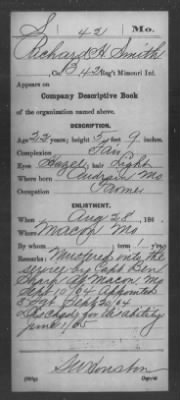 S | 42 | Mo.
Richard H. Smith
Co. B, 42 Reg't Missouri Inf.
Appears on
Company Descriptive Book
of the organization named above.
DESCRIPTION.
Age 22 years; height 5 feet 9 inches.
Complexion Fair
Eyes Hazel; hair Light
Where born Audrain Mo
Occupation Farmer
ENLISTMENT.
When Aug 28, 186 .
Where Macon Mo.
By whom ; term 1 y'rs.
Remarks: Mustered into the
service by Capt Ben
Sharp At Macon Mo
Sept 10/64 Appointed
5 Sgt Sept 20/64
Discharge for disability
June 1/65
Copyist.